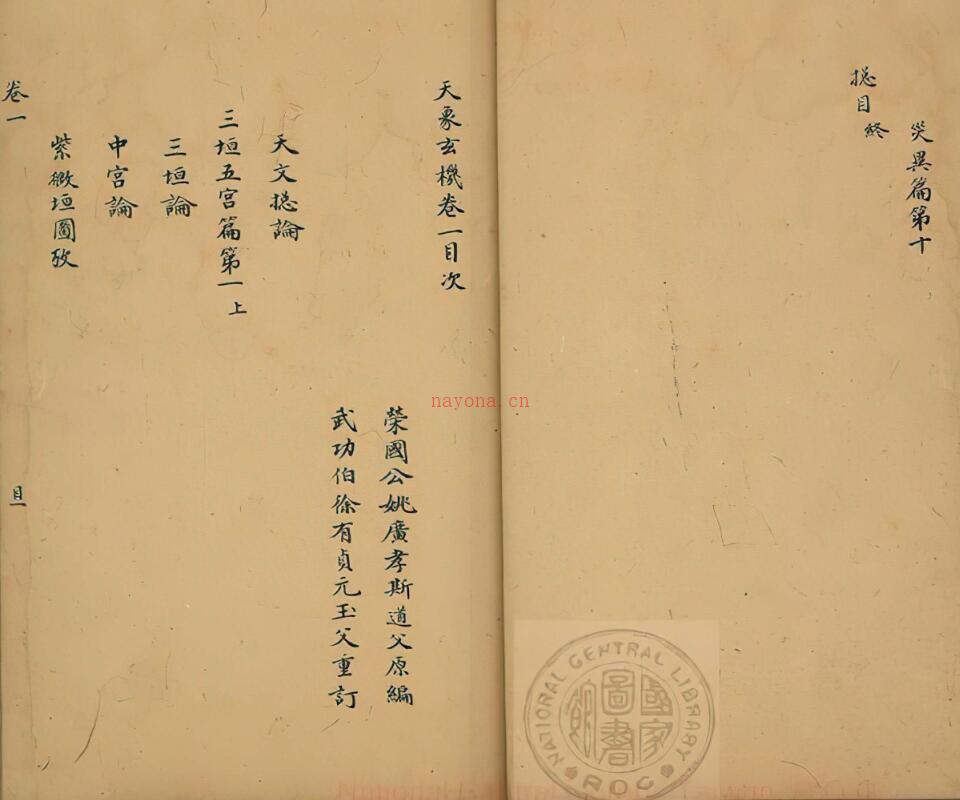 災異篇第十
摠目終
天象玄機卷一目次
榮國公姚廣孝斯道父原編
武功伯徐有貞元玉父重訂
天文摠論
三垣五宮篇第一上
三垣論
中宮論
紫微垣圖攷
卷一
目一
nayona.cn
NATIONAL CENTRAL LIBRARY
ROC
國家圖書館